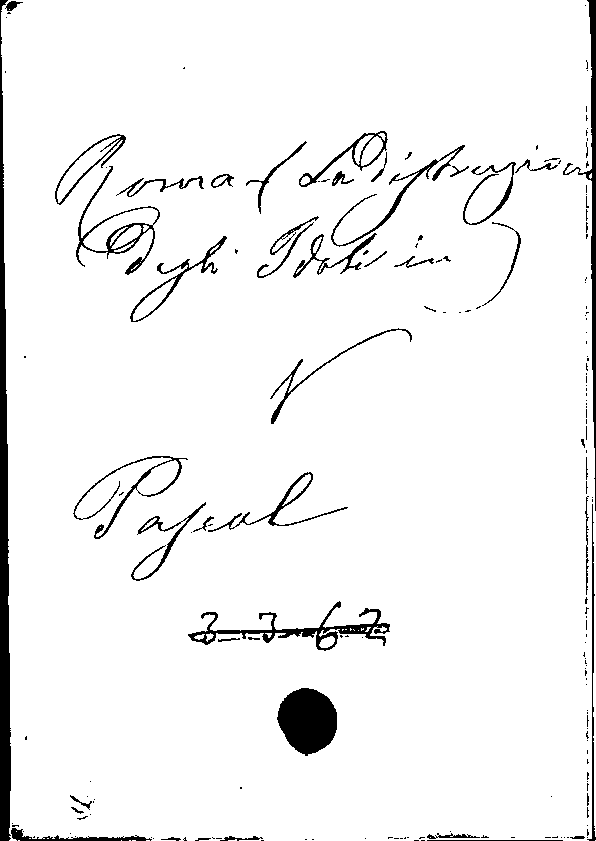 Roma ( La Distruzione
Degli Idoli in )
V
Pascal
3362